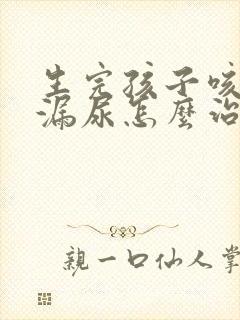 生完孩子咳
漏尿怎麼治
親一口仙人掌